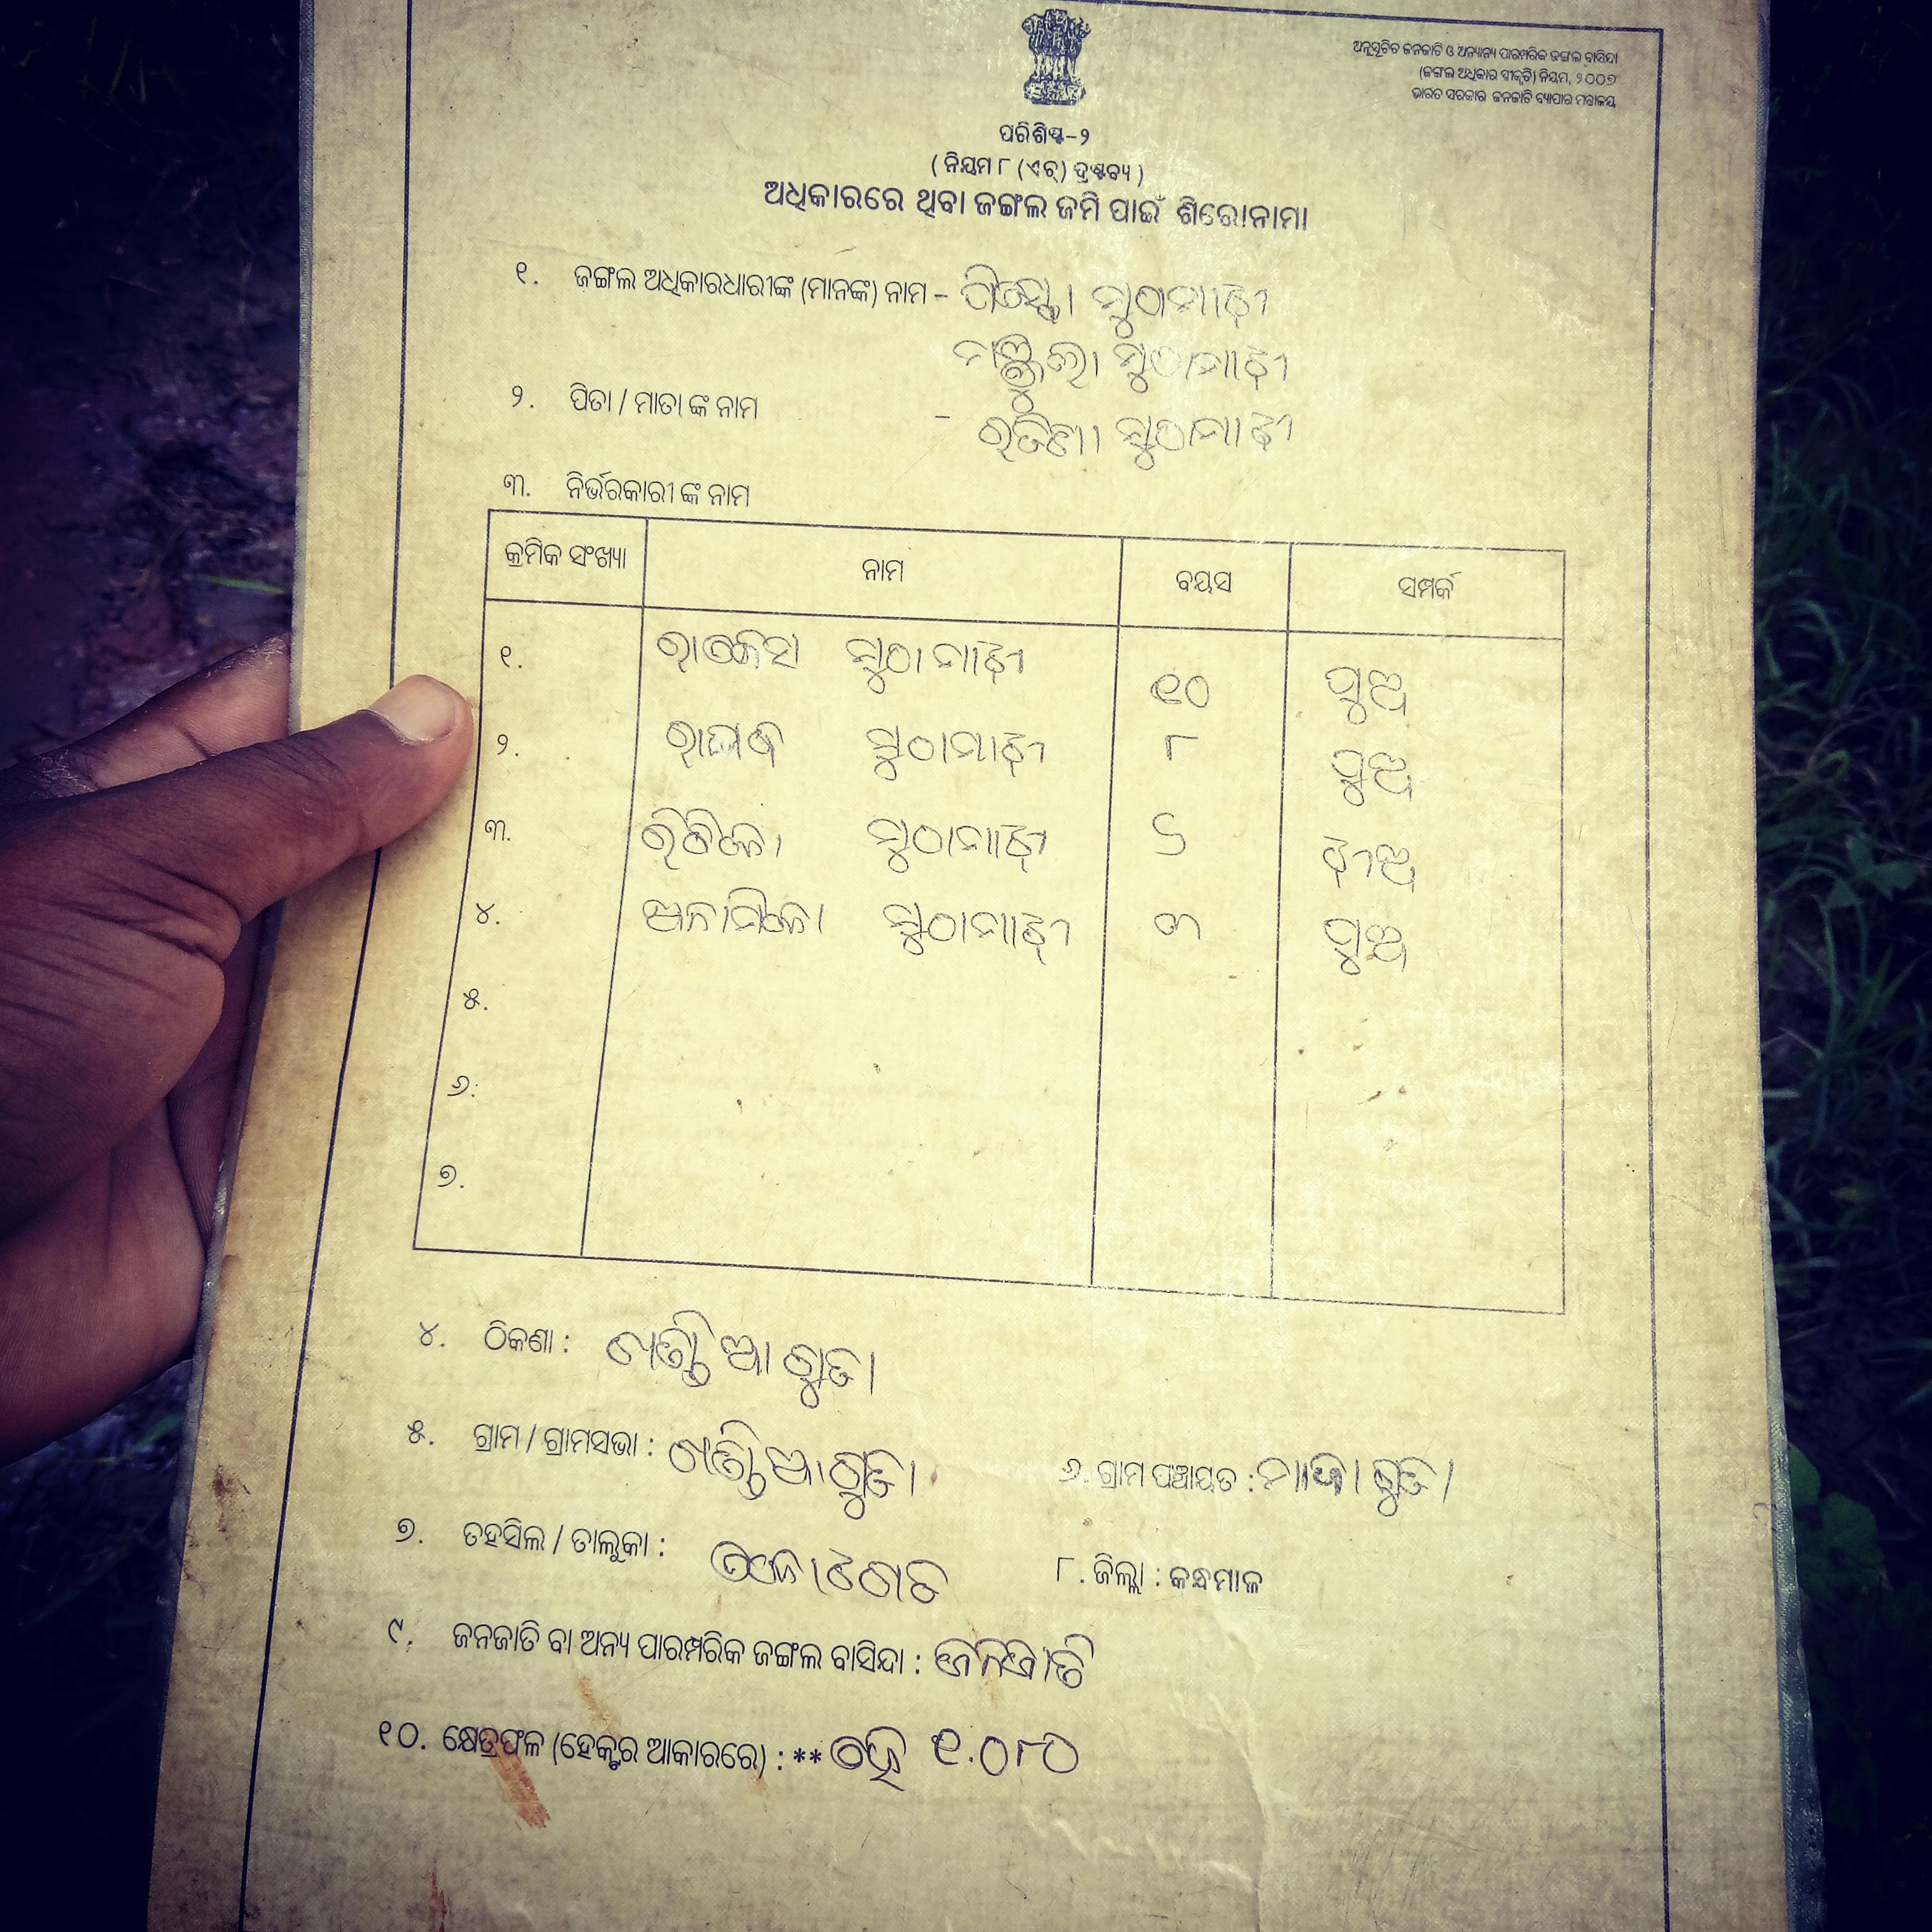 ଅନୁସୂଚିତ ଜନଜାତି ଓ ଅନ୍ୟାନ୍ୟ ପାରମ୍ପରିକ ଜଙ୍ଗଲ ବାସିନ୍ଦା
(ଜଙ୍ଗଲ ଅଧିକାର ସ୍ୱୀକୃତି) ନିୟମ, ୨୦୦୭
ଭାରତ ସରକାର ଜନଜାତି ବ୍ୟାପାର ମନ୍ତ୍ରାଳୟ
ପରିଶିଷ୍ଟ-୨
( ନିୟମ ୮ (ଏଚ୍) ଦ୍ରଷ୍ଟବ୍ୟ )
ଅଧିକାରରେ ଥିବା ଜଙ୍ଗଲ ଜମି ପାଇଁ ଶିରୋନାମା
୧. ଜଙ୍ଗଲ ଅଧିକାରଧାରୀଙ୍କ (ମାନଙ୍କ) ନାମ - ମୁଠାମାଝୀ
ମଞ୍ଜୁଲା ମୁଠାମାଝୀ
୨. ପିତା / ମାତା ଙ୍କ ନାମ - ମୁଠାମାଝୀ
୩. ନିର୍ଭରକାରୀ ଙ୍କ ନାମ
କ୍ରମିକ ସଂଖ୍ୟା ନାମ ବୟସ ସମ୍ପର୍କ
୧. ରାକେସ ମୁଠାମାଝୀ ୧୦ ପୁଅ
୨. ମୁଠାମାଝୀ ୮ ପୁଅ
୩. ମୁଠାମାଝୀ ୬ ଝୀଅ
୪. ମୁଠାମାଝୀ ୩ ପୁଅ
୫.
୬.
୭.
୪. ଠିକଣା :
୫. ଗ୍ରାମ / ଗ୍ରାମସଭା :
୬. ଗ୍ରାମ ପଞ୍ଚାୟତ :
୭. ତହସିଲ / ତାଲୁକା :
୮. ଜିଲ୍ଲା : କନ୍ଧମାଳ
୯. ଜନଜାତି ବା ଅନ୍ୟ ପାରମ୍ପରିକ ଜଙ୍ଗଲ ବାସିନ୍ଦା : ଜନଜାତି
୧୦. କ୍ଷେତ୍ରଫଳ (ହେକ୍ଟର ଆକାରରେ) : ** ହେ ୧.୦୮୦